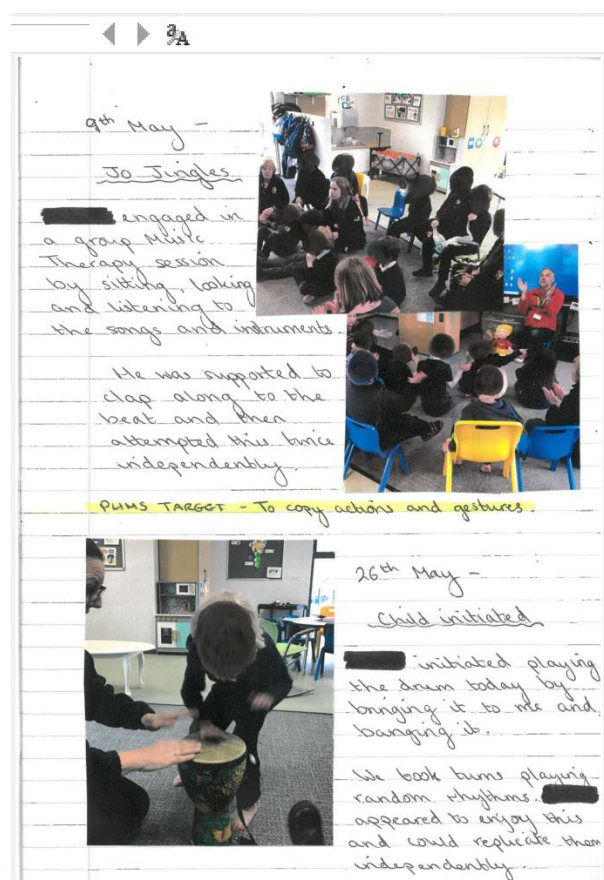 9th May -
Jo Jingles
engaged in
a group Music
Therapy session
by sitting, looking
and listening to
the songs and instruments.
He was supported to
clap along to the
beat and then
attempted this twice
independently.
TARGET - To copy actions and gestures.
26th May -
Child initiated
initiated playing
the drum today by
bringing it to me and
banging it.
We took turns playing
random rhythms.
appeared to enjoy this
and could replicate them
independently.